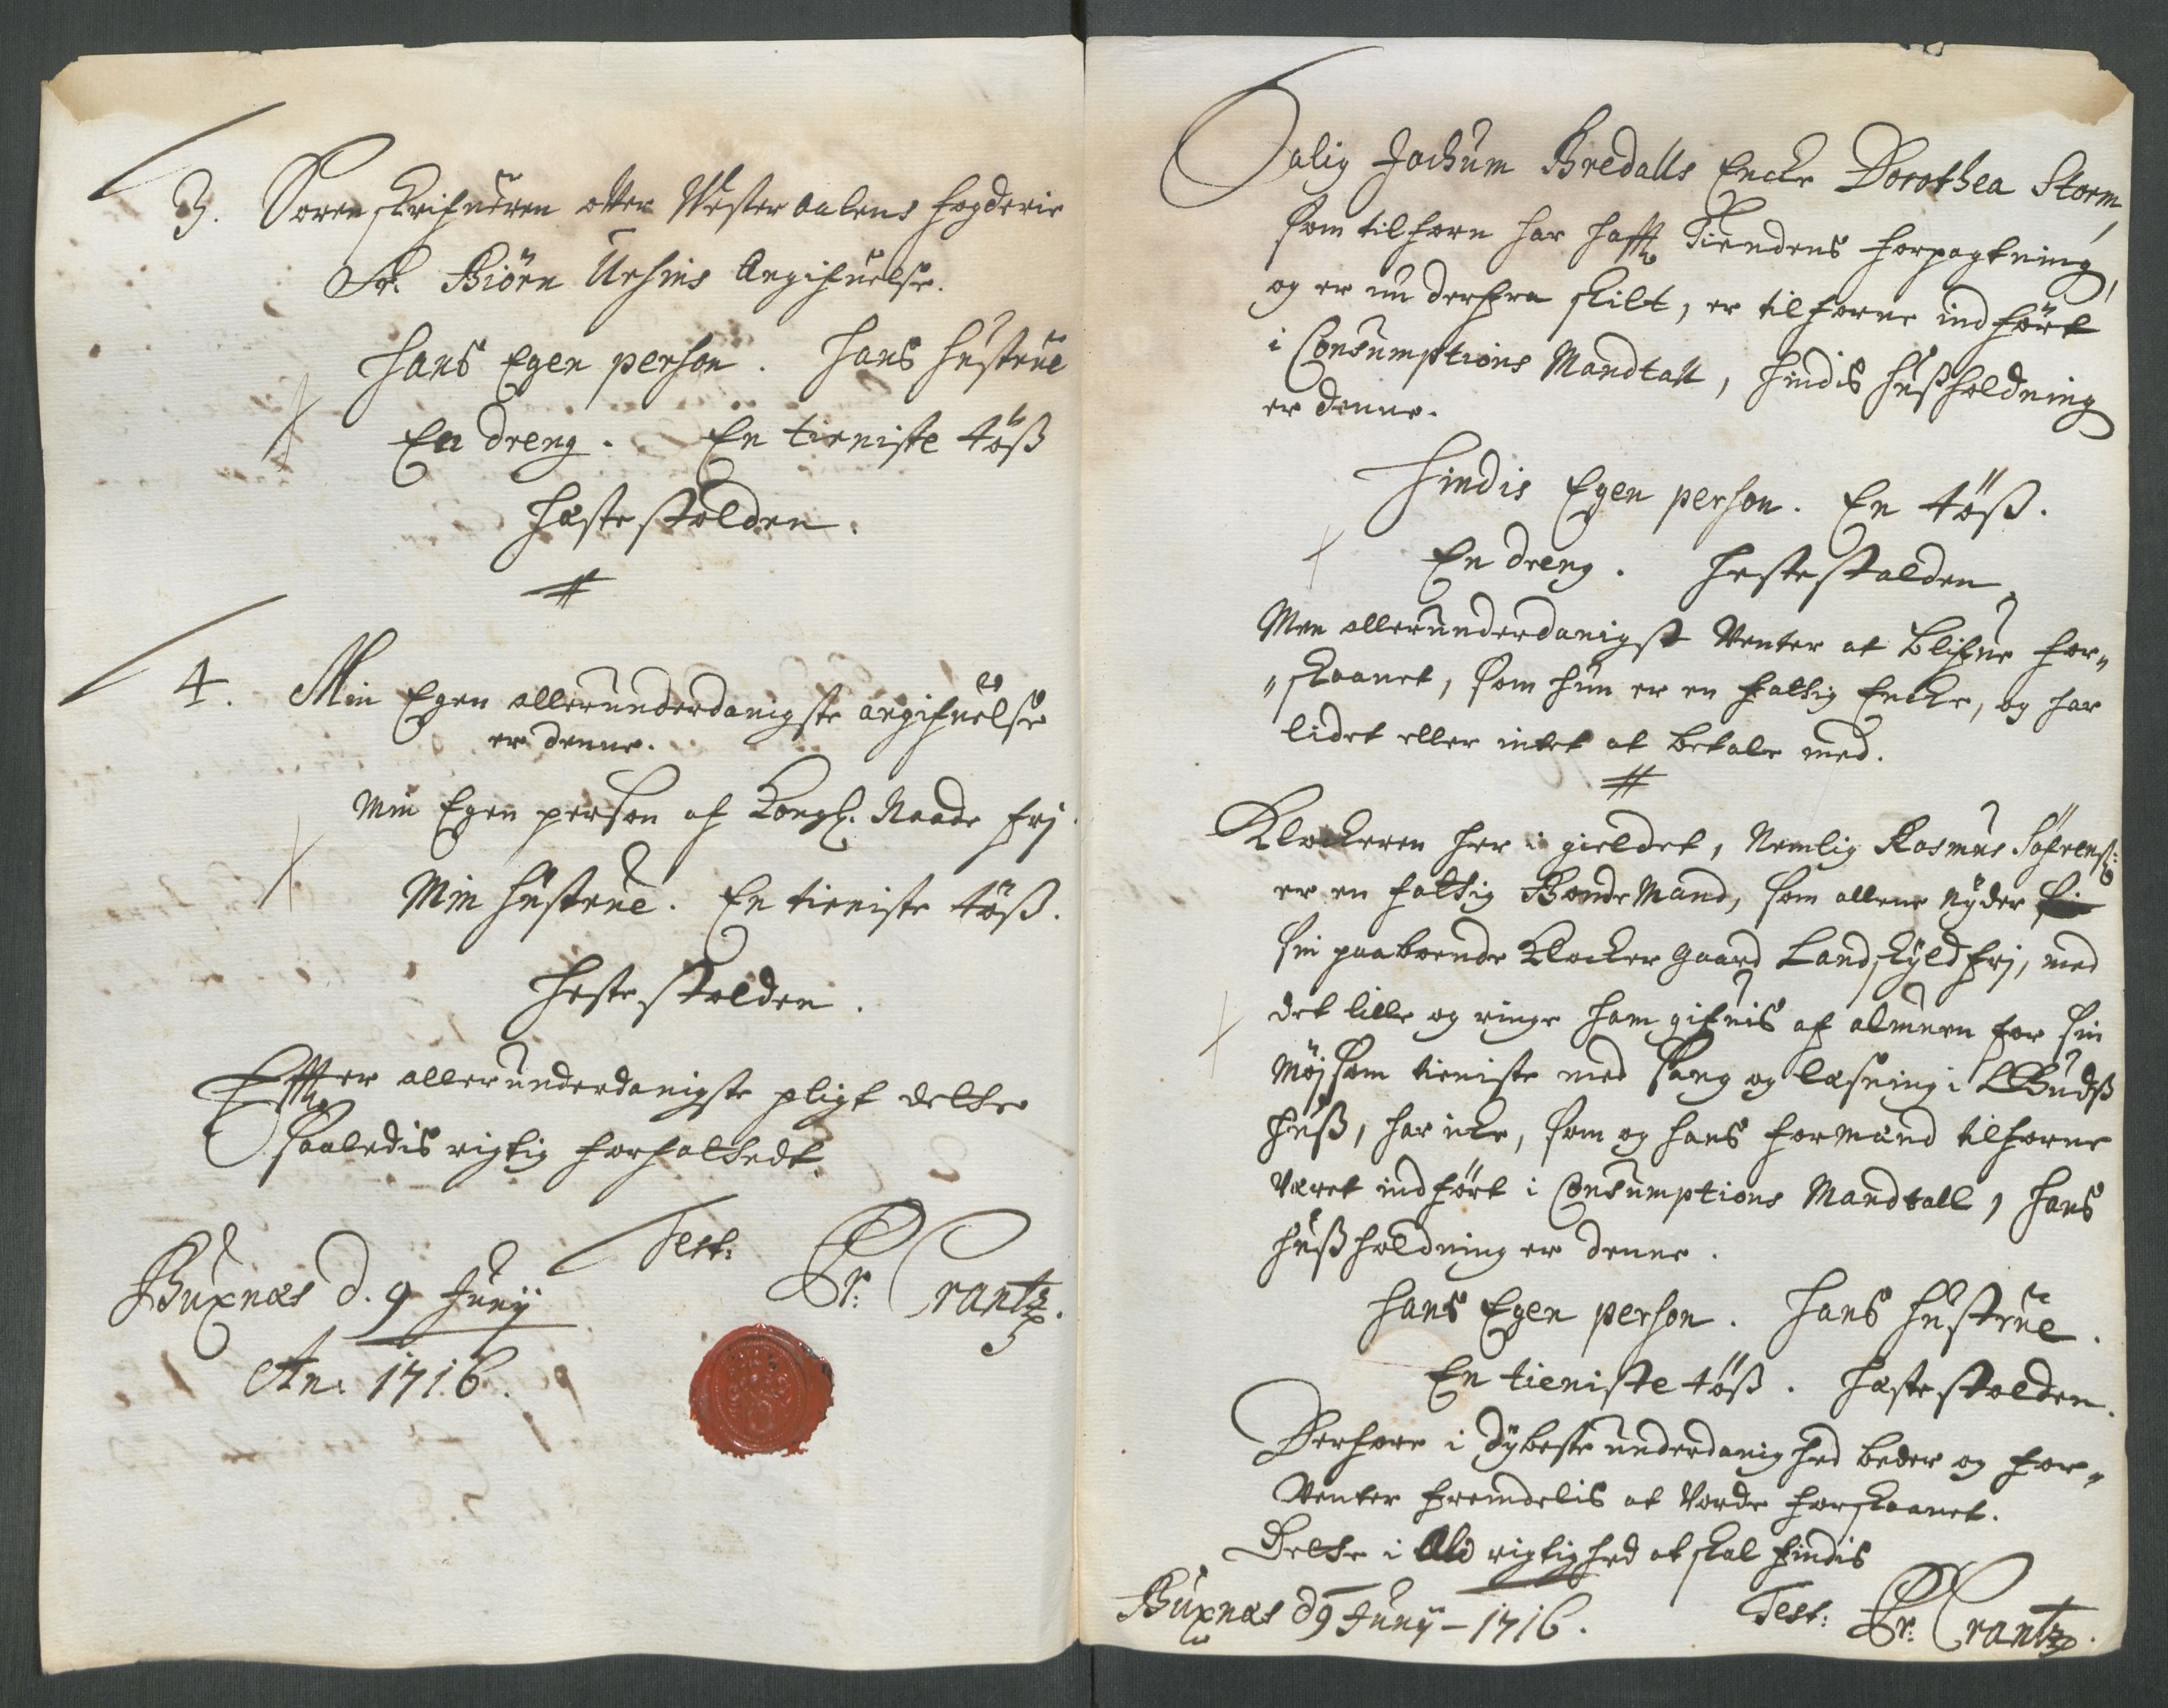 3. Sorenskrifueren ofver Westeraalens fogderie
Sr. Biörn Ursins Angifuelse.
Hans Egen person. Hans Hustrue
En dreng. En tieniste töß
Hæstestolden.
4. Min Egen allerunderdanigste angifuelse
er denne.
Min Egen person af Kongl. Naade frj.
Min Hustrue. En tieniste töß.
Hestestolden.
Effter allerunderdanigste pligt dette
saaledis rigtig forfattedt.
Test:
Buxnæs d. 9 Junij Pr: Crantz.
An: 1716.
Salig Jochum Bredalls Encke Dorothea Storm,
som tilforn har hafft Tiendens forpagtning,
og er nu derfra skilt, er tilforne indført
i Consumptions Mandtall, hindis hußholdning
er denne.
Hindis Egen person. En töß.
En dreng. Hestestalden
Men allerunderdanigst Venter at blifue for„
„skaanet, som hun er en fattig Encke, og har
lidet eller intet at betale med.
Klockeren her i gieldet, Nemlig Rasmus Söfrenß:
er en fattig Bonde Mand, som allene nyder
sin paaboende Klocker gaard Landskyld frj, med
det lille og ringe ham gifuis af almuen for sin
Möjsom tieniste med sang og læsning i Gudß
huß, har icke, som og hans formand tilforne
Været indført i Consumptions Mandtall, hans
hußholdning er denne.
Hans Egen person. Hans Hustrue.
En tieniste töß. Hæstestolden.
Derfore i dybeste underdanighed beder og for„
Venter fremdelis at Vorde forskaanet.
Dette i Ald rigtighed at skal findis
Buxnæs d 9 Junij - 1716. Test: Pr: Crantz.